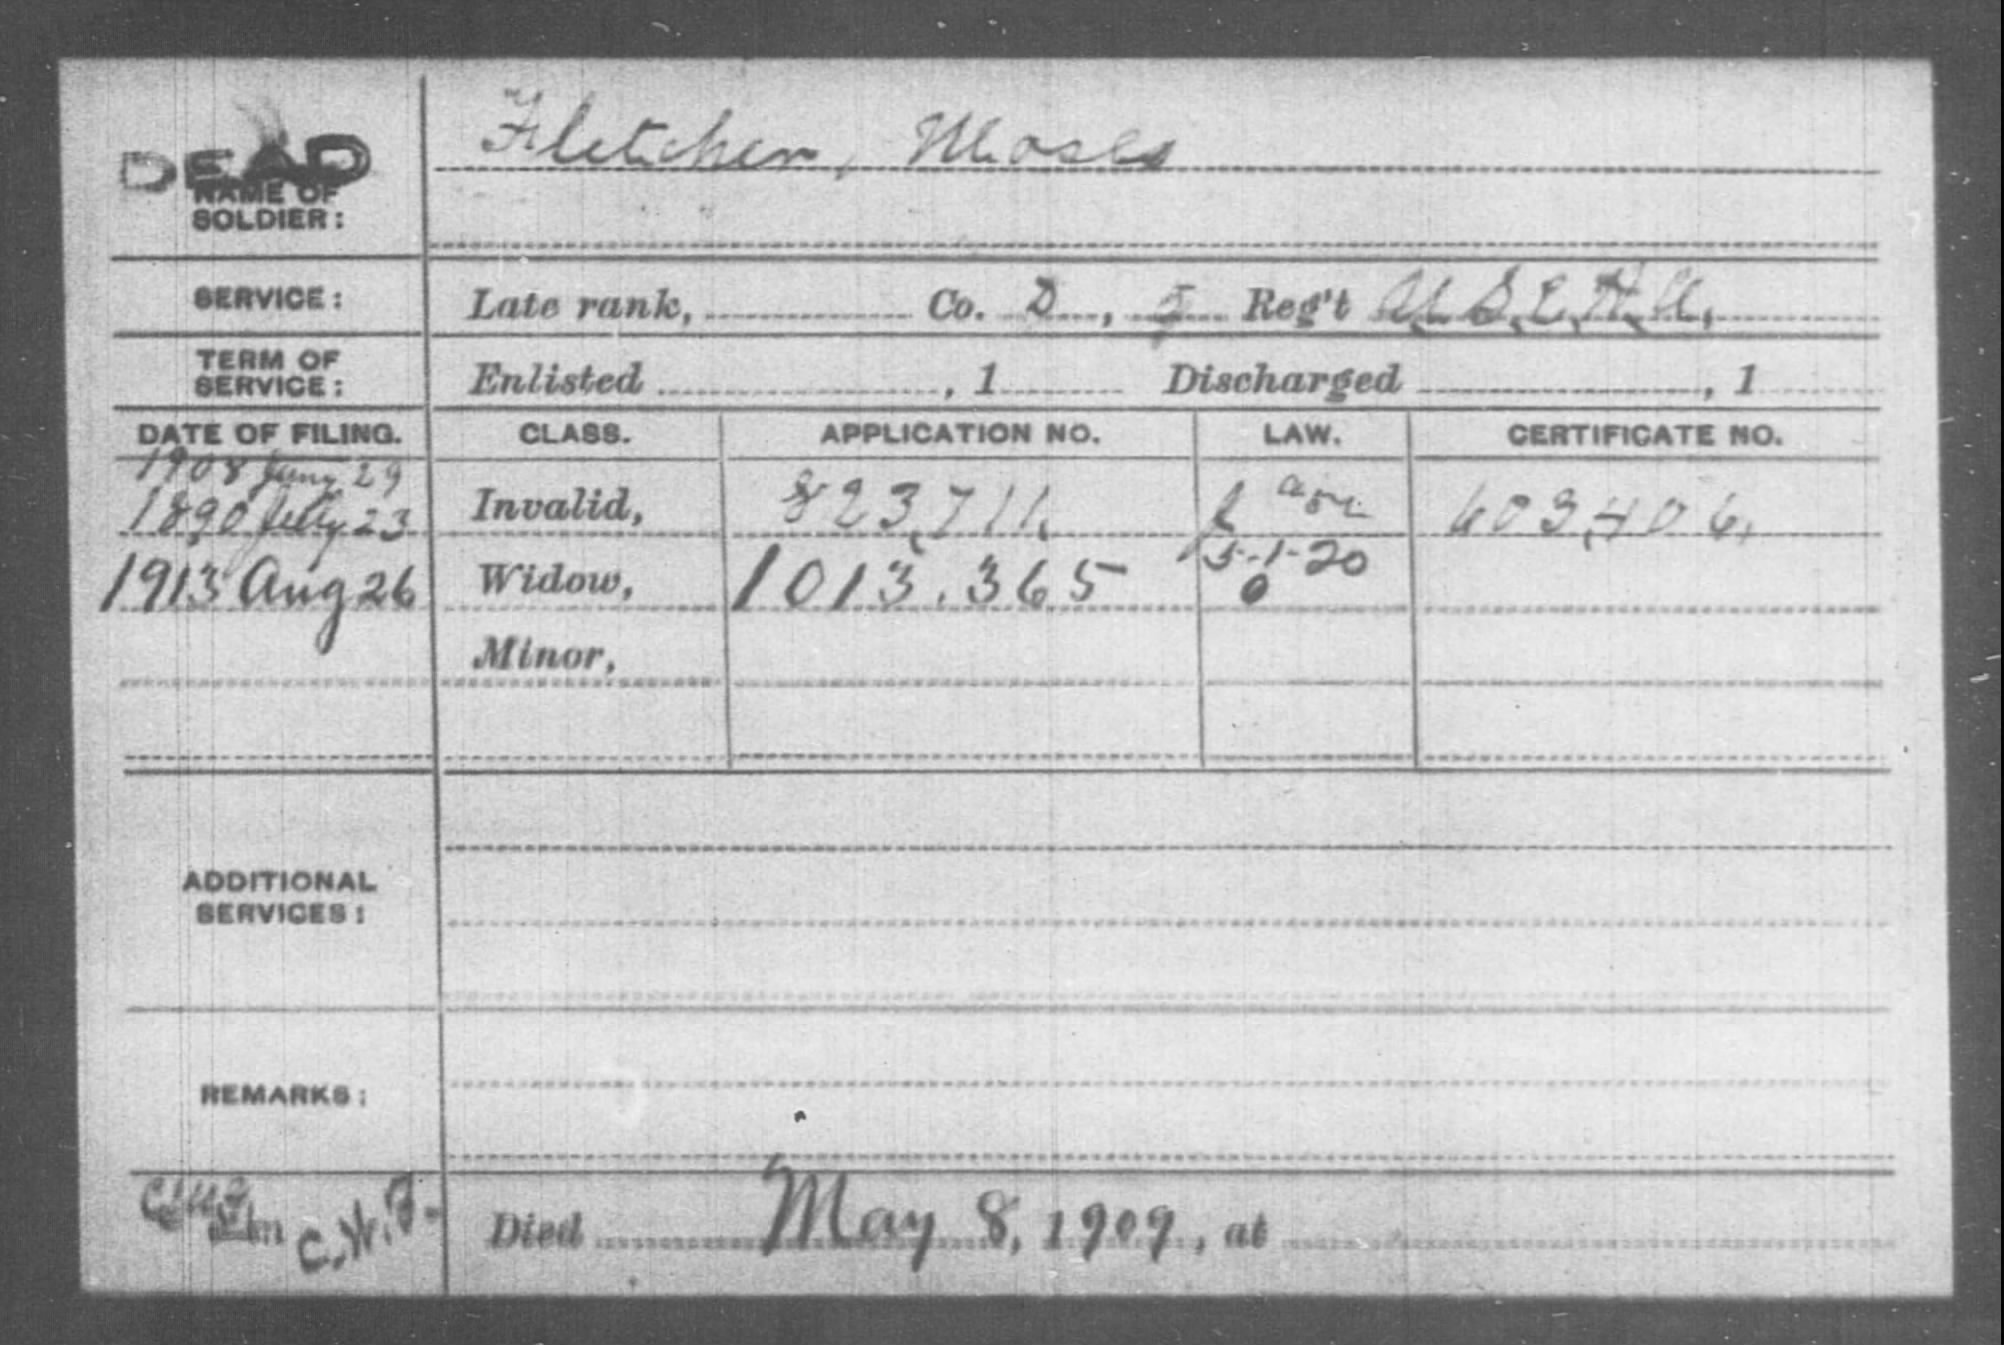 DEAD
NAME OF
SOLDIER:
Fletcher, Moses
SERVICE:
Late rank, Co. D, 5 Reg't U.S.C.H.A.
TERM OF
SERVICE:
Enlisted , 1 Discharged , 1
DATE OF FILING. CLASS. APPLICATION NO. LAW. CERTIFICATE NO.
1908 29
1890 July 23 Invalid, 823,711, 603,406,
1913 Aug 26 Widow, 1013.365 5-1-20
Minor,
ADDITIONAL
SERVICES:
REMARKS:
C.W.F.
Died May 8, 1909, at